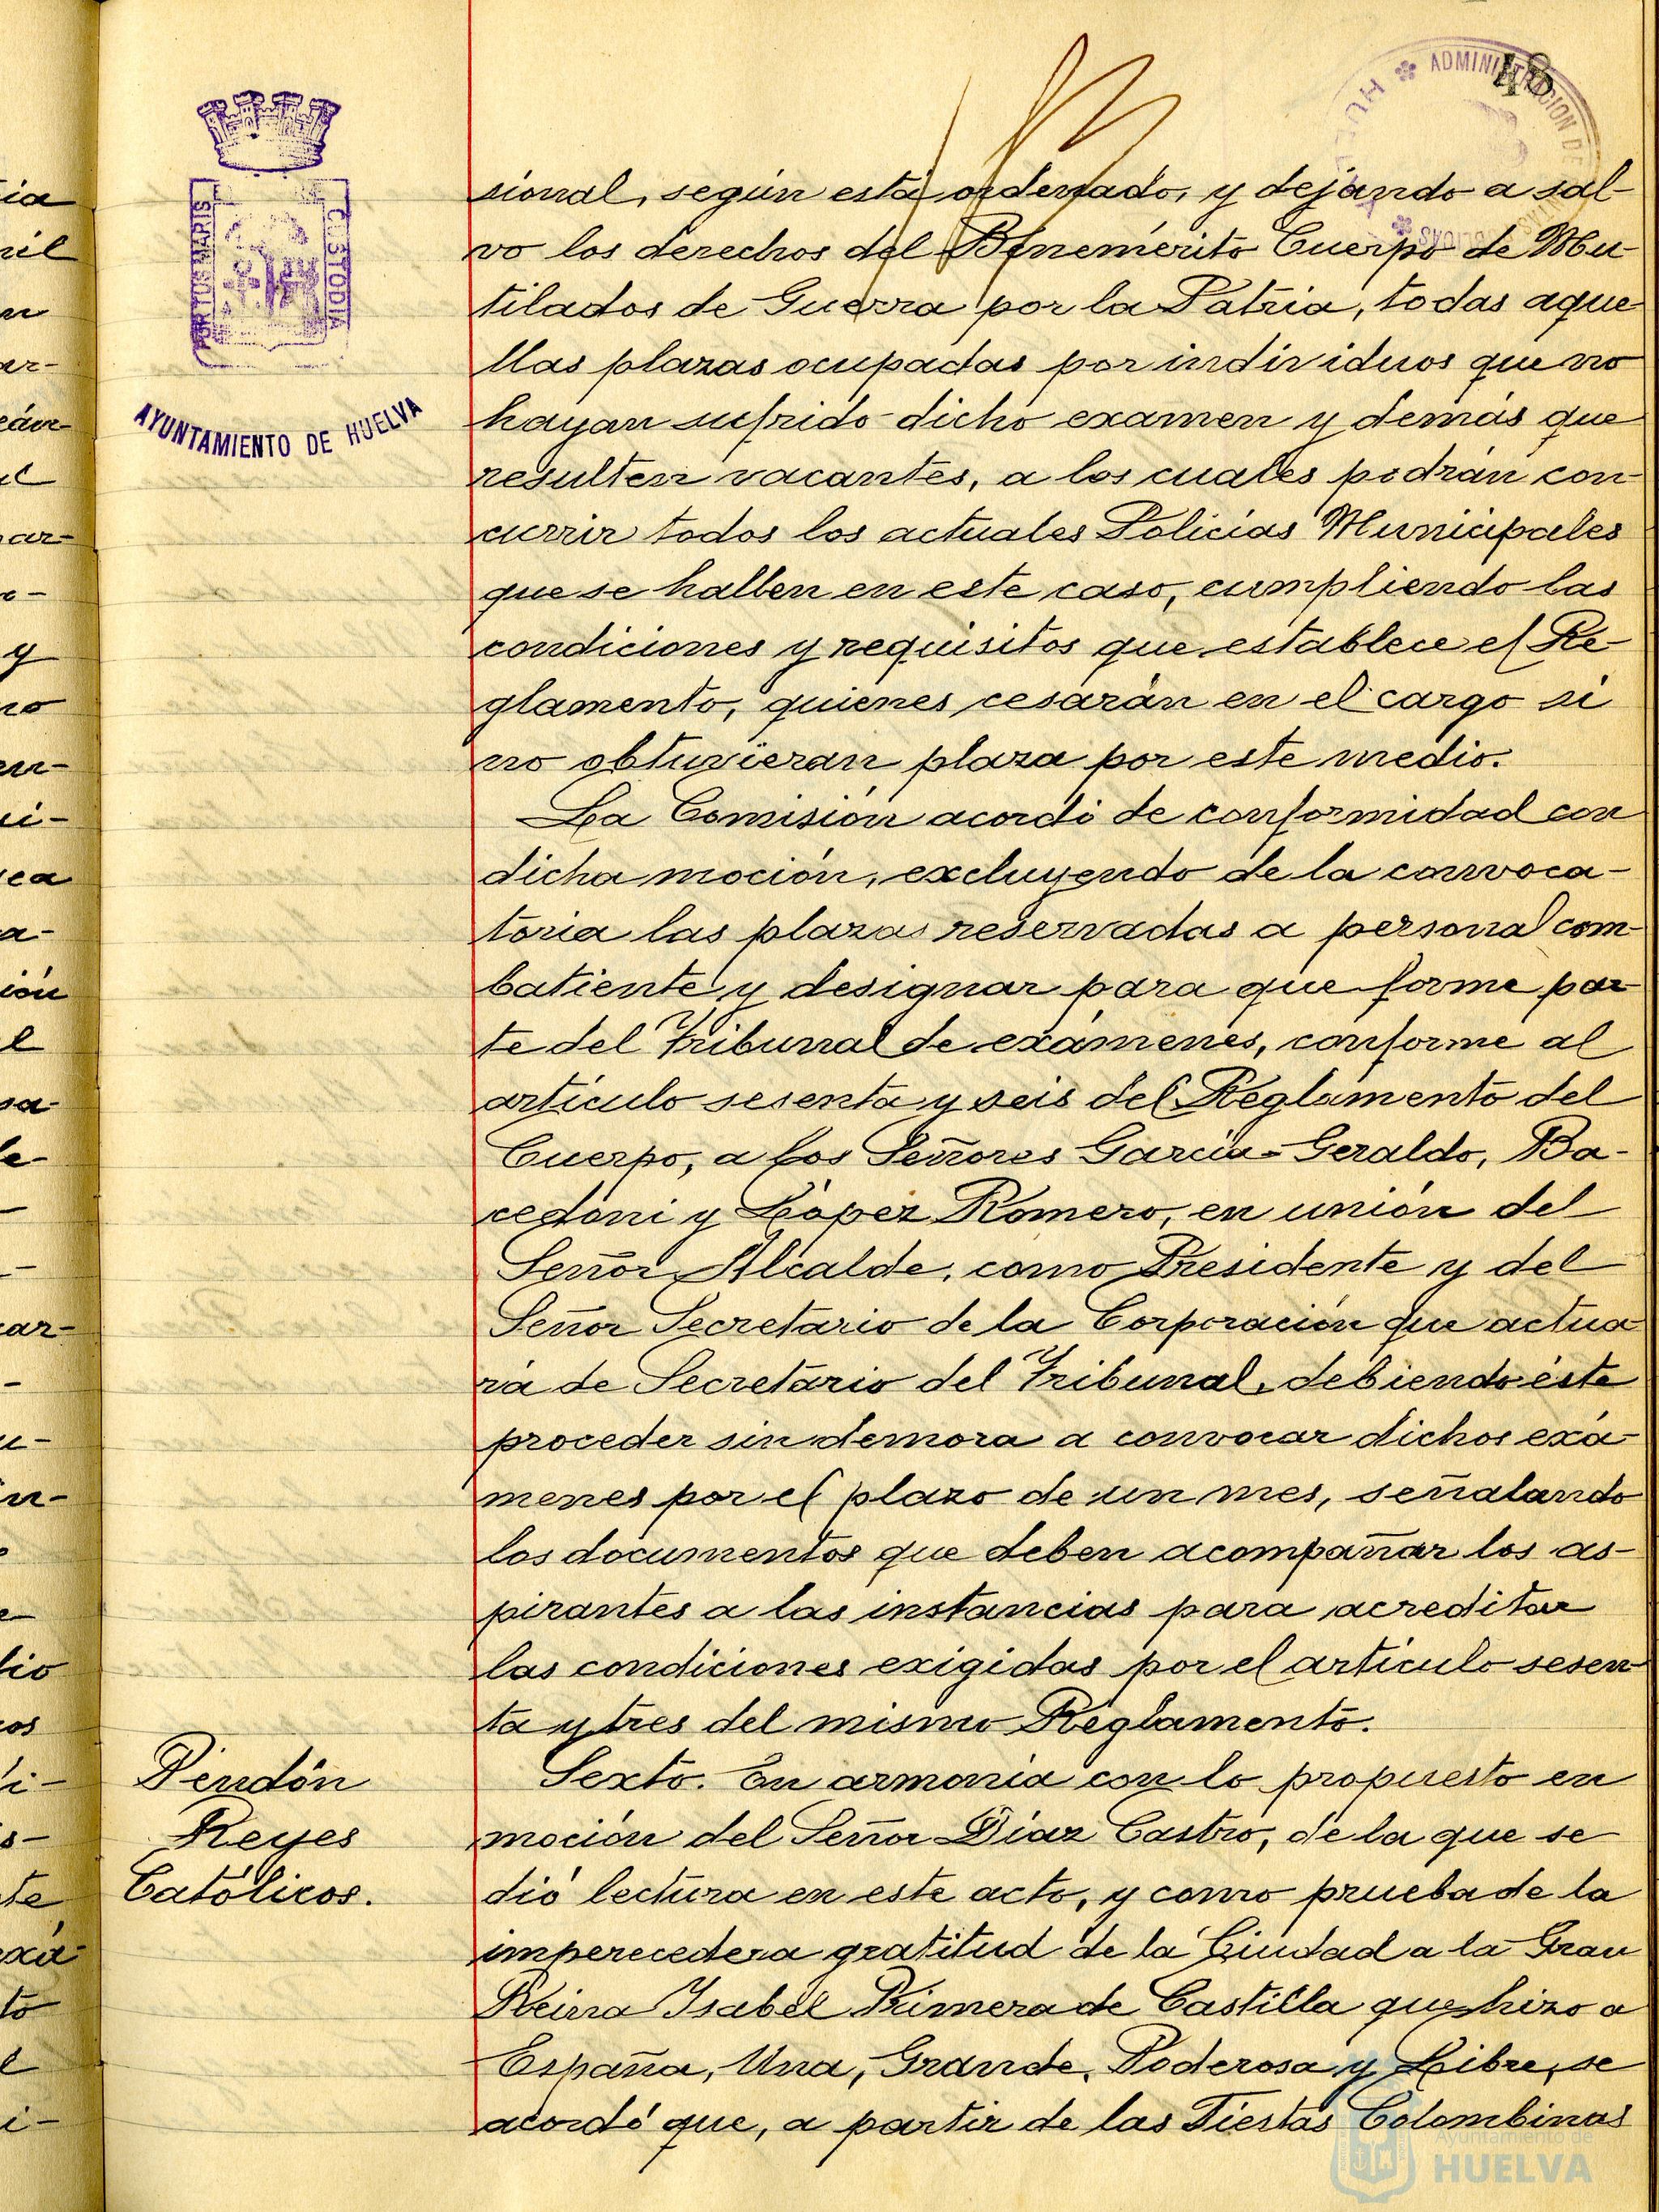 48
ADMINISTRACION DE
PORTUS MARIS
CUSTODIA
AYUNTAMIENTO DE HUELVA
sional, según está ordenado, y dejando a sal-
vo los derechos del Benemérito Cuerpo de Mu-
tilados de Guerra por la Patria, todas aque-
llas plazas ocupadas por individuos que no
hayan sufrido dicho examen y demás que
resulten vacantes, a los cuales podrán con-
currir todos los actuales Policías Municipales
que se hallen en este caso, cumpliendo las
condiciones y requisitos que establece el Re-
glamento, quienes cesarán en el cargo si
no obtuvieran plaza por este medio.
La Comisión acordó de conformidad con
dicha moción, excluyendo de la convoca-
toria las plazas reservadas a personal com-
batiente y designar para que forme par-
te del Tribunal de exámenes, conforme al
artículo sesenta y seis del Reglamento del
Cuerpo, a los Señores García-Geraldo, Ba-
cedóni y López Romero, en unión del
Señor Alcalde, como Presidente y del
Señor Secretario de la Corporación que actua-
rá de Secretario del Tribunal, debiendo éste
proceder sin demora a convocar dichos exá-
menes por el plazo de un mes, señalando
los documentos que deben acompañar los as-
pirantes a las instancias para acreditar
las condiciones exigidas por el artículo sesen-
ta y tres del mismo Reglamento.
Pendón
Reyes
Católicos.
Sexto. En armonía con lo propuesto en
moción del Señor Díaz Castro, de la que se
dió lectura en este acto, y como prueba de la
imperecedera gratitud de la Ciudad a la Gran
Reina Isabel Primera de Castilla que hizo a
España, Una, Grande, Poderosa y Libre, se
acordó que, a partir de las Fiestas Colombinas
Ayuntamiento de
HUELVA